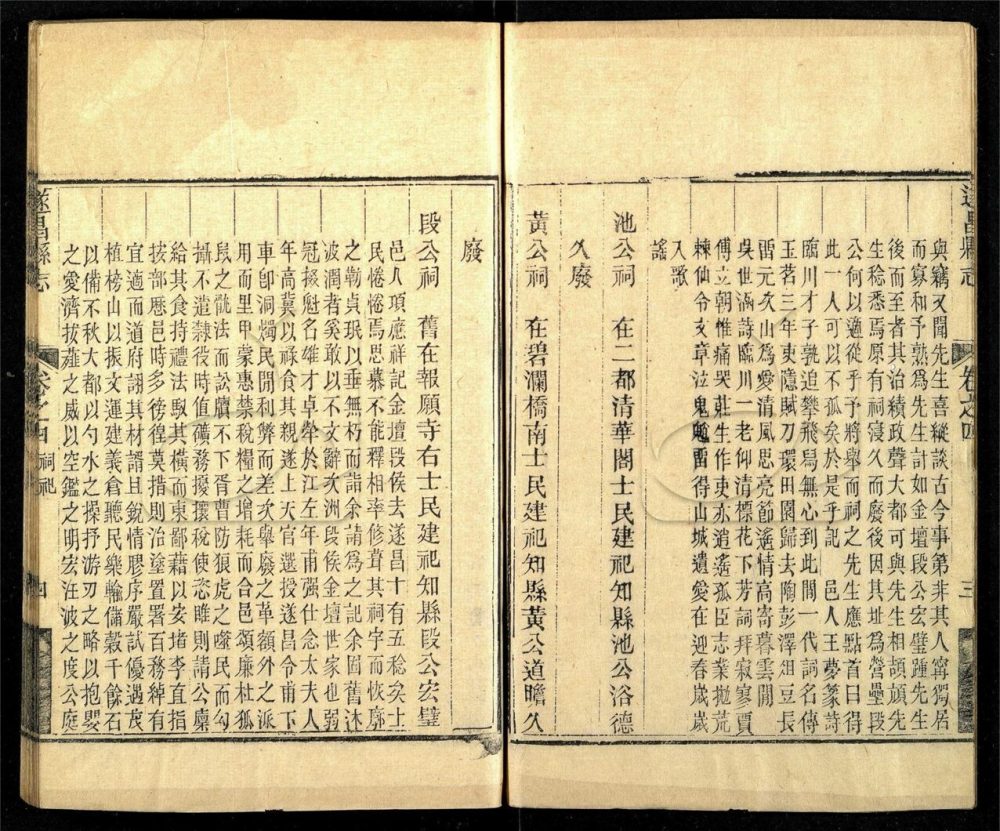 遂昌縣志
卷之四
三
與竊又聞先生喜縱談古今事第非其人寧獨居
而寡和予熟爲先生計如金壇段公宏璧踵先生
後而至者其治績政聲大都可與先生相頡頏先
生稔悉焉原有祠寢久而廢後因其址爲營壘段
公何以適從乎予將舉而祠之先生應點首曰得
此一人可以不孤矣於是乎記　邑人王夢篆詩
臨川才子孰追攀飛舄無心到此間一代詞名傳
玉茗三年吏隱賦刀環田園歸去陶彭澤俎豆長
留元次山爲愛清風思亮節遙情高寄暮雲閒
吳世涵詩臨川一老仰清標花下芳詞拜寂寥賈
傅立朝惟痛哭莊生作吏亦逍遙孤臣志業拋荒
棘仙令文章泣鬼魈留得山城遺愛在迎春歲歲
入歌
謠
池公祠　在二都清華閣士民建祀知縣池公浴德
久廢
黃公祠　在碧瀾橋南士民建祀知縣黃公道瞻久
廢
段公祠　舊在報願寺右士民建祀知縣段公宏璧
邑人項應祥記金壇段侯去遂昌十有五稔矣士
民惓惓焉思慕不能釋相率修葺其祠宇而恢廓
之勒貞珉以垂無朽而詣余請爲之記余固舊沐
波潤者奚敢以不文辭次洲段侯金壇世家也弱
冠掇魁名雄才卓犖於江左年甫強仕念太夫人
年高冀以祿食其親遂上天官選授遂昌令甫下
車卽洞燭民間利弊而差次舉廢之革額外之派
用而里甲蒙惠禁稅糧之增耗而合邑頌廉杜狐
鼠之骫法而訟牘不下胥曹防狼虎之噬民而勾
攝不遣隸役時值礦務擾攘稅使恣睢則請公廩
給其食持禮法馭其橫而東鄙藉以安堵李直指
按部歷邑時多徬徨莫措則治塗置署百務綽有
宜適而道府詡其材諝且銳情膠序嚴試優遇度
植榜山以振文運建義倉聽民樂輸儲穀千餘石
以備不秋大都以勺水之操抒游刃之略以抱嬰
之愛濟拔薤之威以空鑑之明宏汪波之度公庭
遂昌縣志
卷之四　祠祀
四